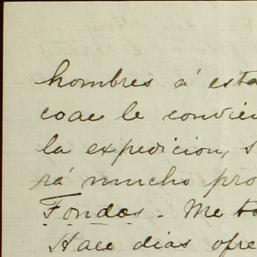 hombres á esta
coac le convien
la expedicion, s
rá mucho pro
Fondos. Me to
Hace dias ofre